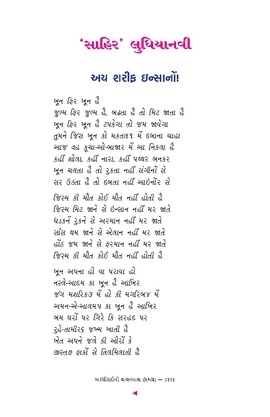 'સાહિર' લુધિયાનવી
અય શરીફ ઇન્સાનોં!
ખૂન ફિર ખૂન હૈ
ઝુલ્મ ફિર ઝુલ્મ હૈ, બઢતા હૈ તો મિટ જાતા હૈ
ખૂન ફિર ખૂન હૈ ટપકેગા તો જમ જાયેગા
તુમને જિસ ખૂન કો મકતલમેં દબાના ચાહા
આજ વહ કૂચા-ઓ-બાજાર મેં આ નિકલા હૈ
કહીં શોલા, કહીં નારા, કહીં પથ્થર બનકર
ખૂન ચલતા હૈ તો રુકતા નહીં સંગીનોં સે
સર ઉઠતા હૈ તો દબતા નહીં આઈનોંર સે
જિસ્મ કી મૌત કોઈ મૌત નહીં હોતી હૈ
જિસ્મ મિટ જાને સે ઇન્સાન નહીં મર જાતે
ધડકનેં રુકને સે અરમાન નહીં મર જાતે
સાઁસ થમ જાને સે એલાન નહીં મર જાતે
હોંઠ જમ જાને સે ફરમાન નહીં મર જાતે
જિસ્મ કી મૌત કોઈ મૌત નહીં હોતી હૈ
ખૂન અપના હો યા પરાયા હો
નસ્લે-આદમ કા ખૂન હૈ આખિર
જંગ મશરિક૩ મેં હો કી મગરિબ૪ મેં
અમન-એ-આલમ૫ કા ખૂન હૈ આખિર
બમ ઘરોં પર ગિરે કિ સરહદ પર
રુહે-તામીર૬ જખ્મ ખાતી હૈ
ખેત અપને જલે કી ઔરોં કે
જીસ્ત૭ ફાકોં સે તિલમિલાતી હૈ